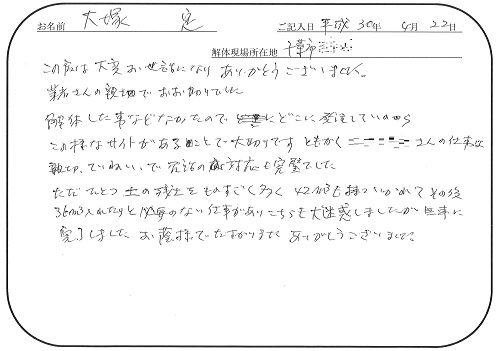 お名前 大塚 定 ご記入日 平成 30年 4月 22日
解体現場所在地 千葉市
この度は大変お世話になりありがとうございました。
業者さんの親切でおお助りでした
解体した事などなかったので どこに発注していいか
この様なサイトがあることで大切りです ともかく さんの仕事は
親切、ていねい、で 対応も完璧でした
ただひとつ土の残土をものすごく多く 42m3も持っていかれて その後
36m3入れたりと のない仕事がありこちらも大迷惑しましたが 無事に
完了しました お蔭様でたすかりました ありがとうございました。